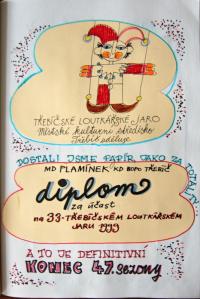 TŘEBÍČSKÉ LOUTKÁŘSKÉ JARO
Městské kulturní středisko
Třebíč uděluje
DOSTALI JSME PAPÍR JAKO ZA TOTÁČE
MD PLAMÍNEK KD BOPO TŘEBÍČ
diplom
za účast
na 33. TŘEBÍČSKÉM LOUTKÁŘSKÉM
JARU 1999
A TO JE DEFINITIVNÍ
KONEC 47. sezony